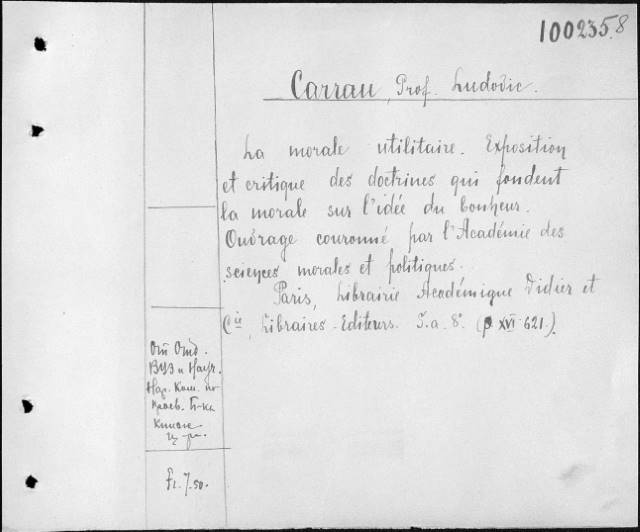 100235.8
Carrau, Prof. Ludovic.
La morale utilitaire. Exposition
et critique des doctrines qui fondent
la morale sur l'idée du bonheur.
Ouvrage couronné par l'Académie des
sciences morales et politiques.
Paris, Librairie Académique Didier et
Cie, Libraires-Editeurs. S.a. 8°. (p XVI 621.)
От Отд.
ВУЗ и Науч.
Нар. Ком. по
Просв. Б-ка
Fr. 7.50.